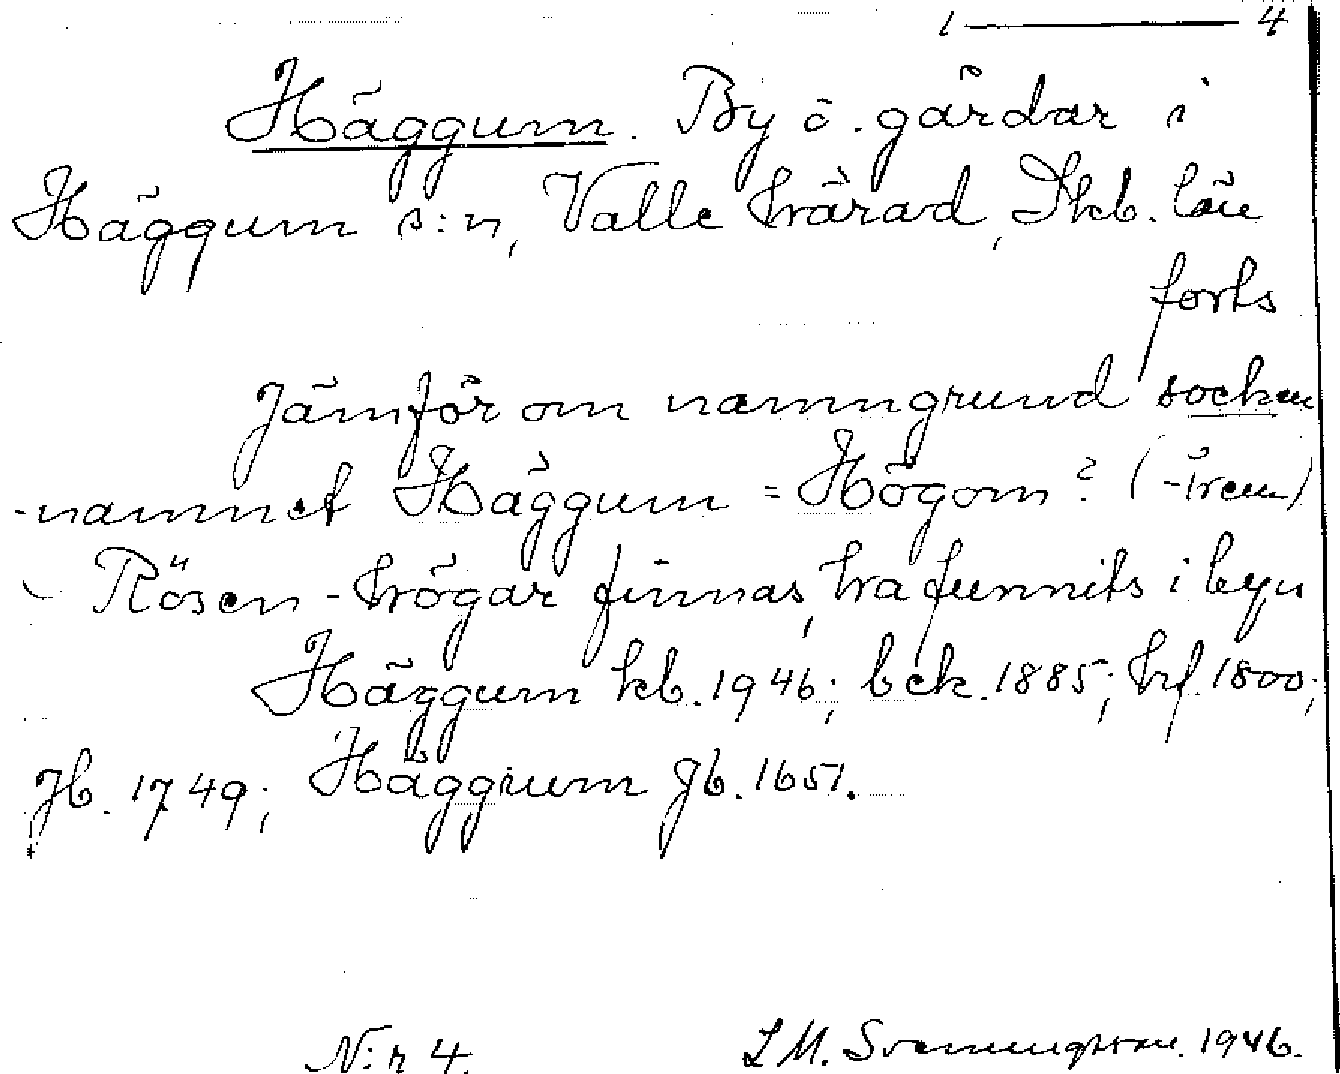 1 — 4
Häggum. By o. gårdar i
Häggum s:n, Valle härad, Skb. län
forts
Jämför om namngrund socken
-namnet Häggum = Högom? (-hem)
- Rösen-högar finnas, ha funnits i byn
Häggum kb. 1946; bck. 1885; hf. 1800;
Jb. 1749; Häggrum Jb. 1651.
N:r 4. L M. Svenungsson. 1946.